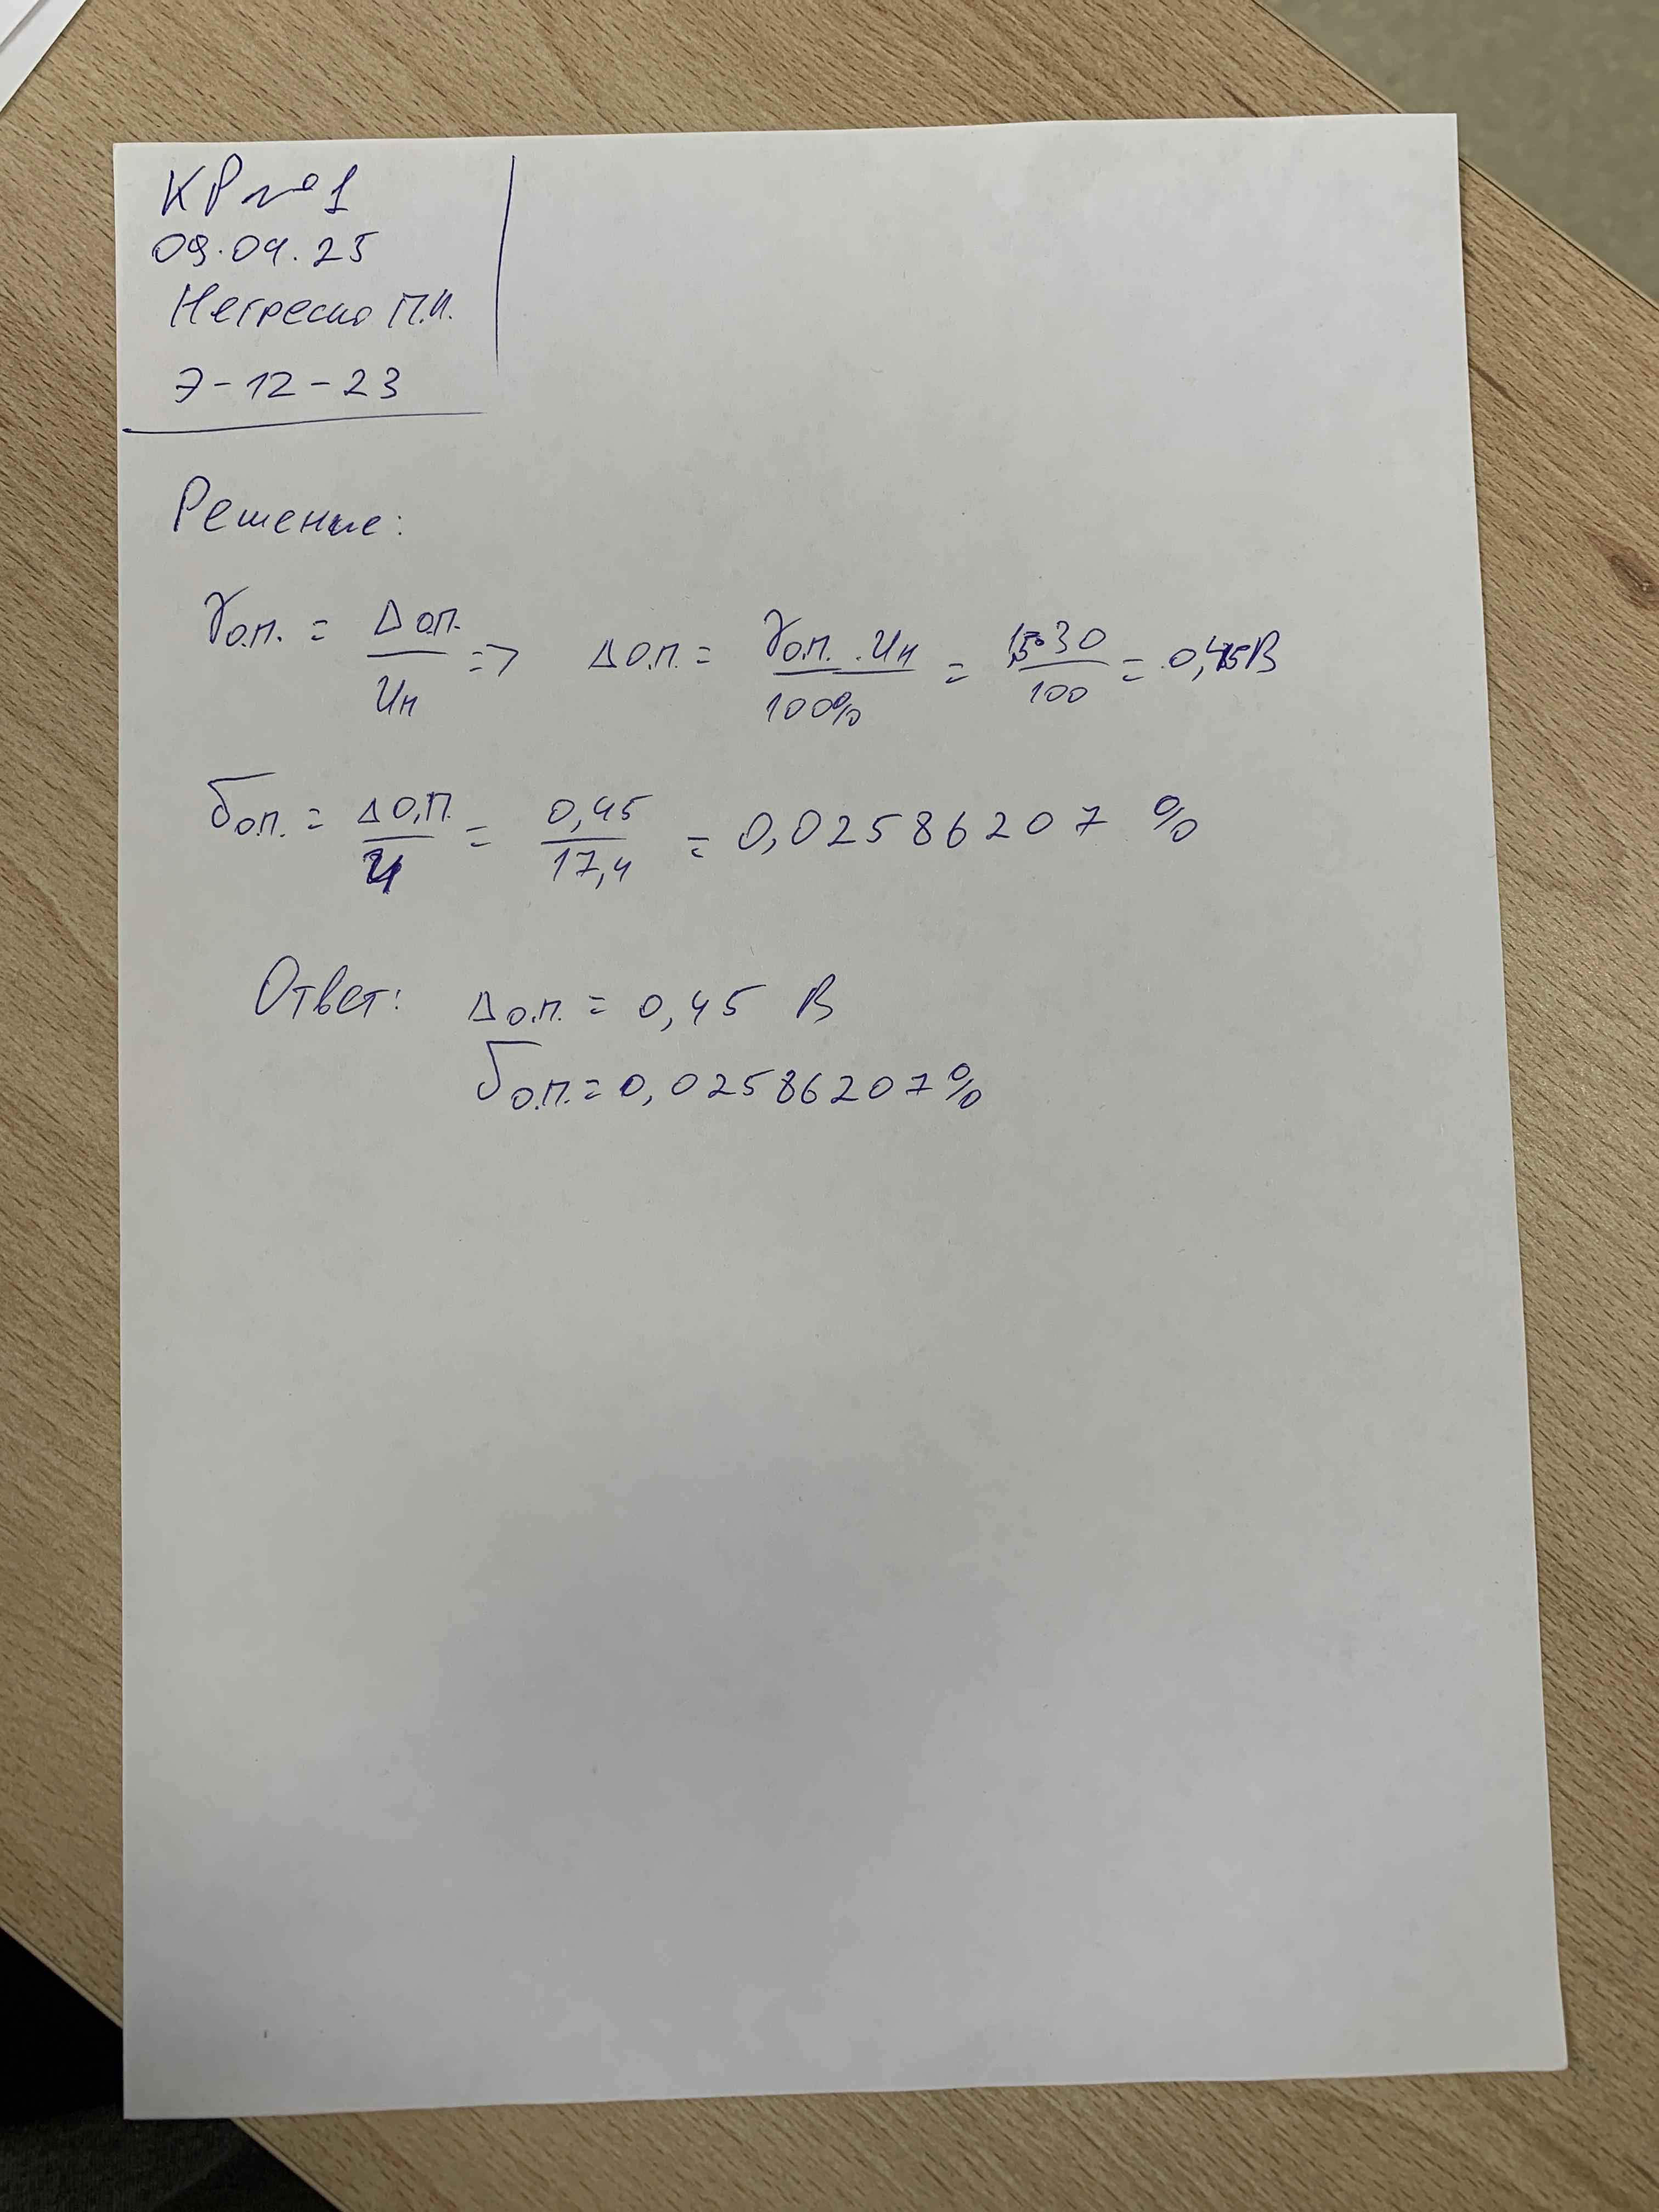 КР №1
09.04.25
Негреско П.И.
Э-12-23
Решение:
γо.п. = Δо.п. / Uн => Δо.п. = γо.п. · Uн / 100% = 1,5·30 / 100 = 0,45В
δо.п. = Δо.п. / U = 0,45 / 17,4 = 0,02586207 %
Ответ: Δо.п. = 0,45 В
δо.п. = 0,02586207%